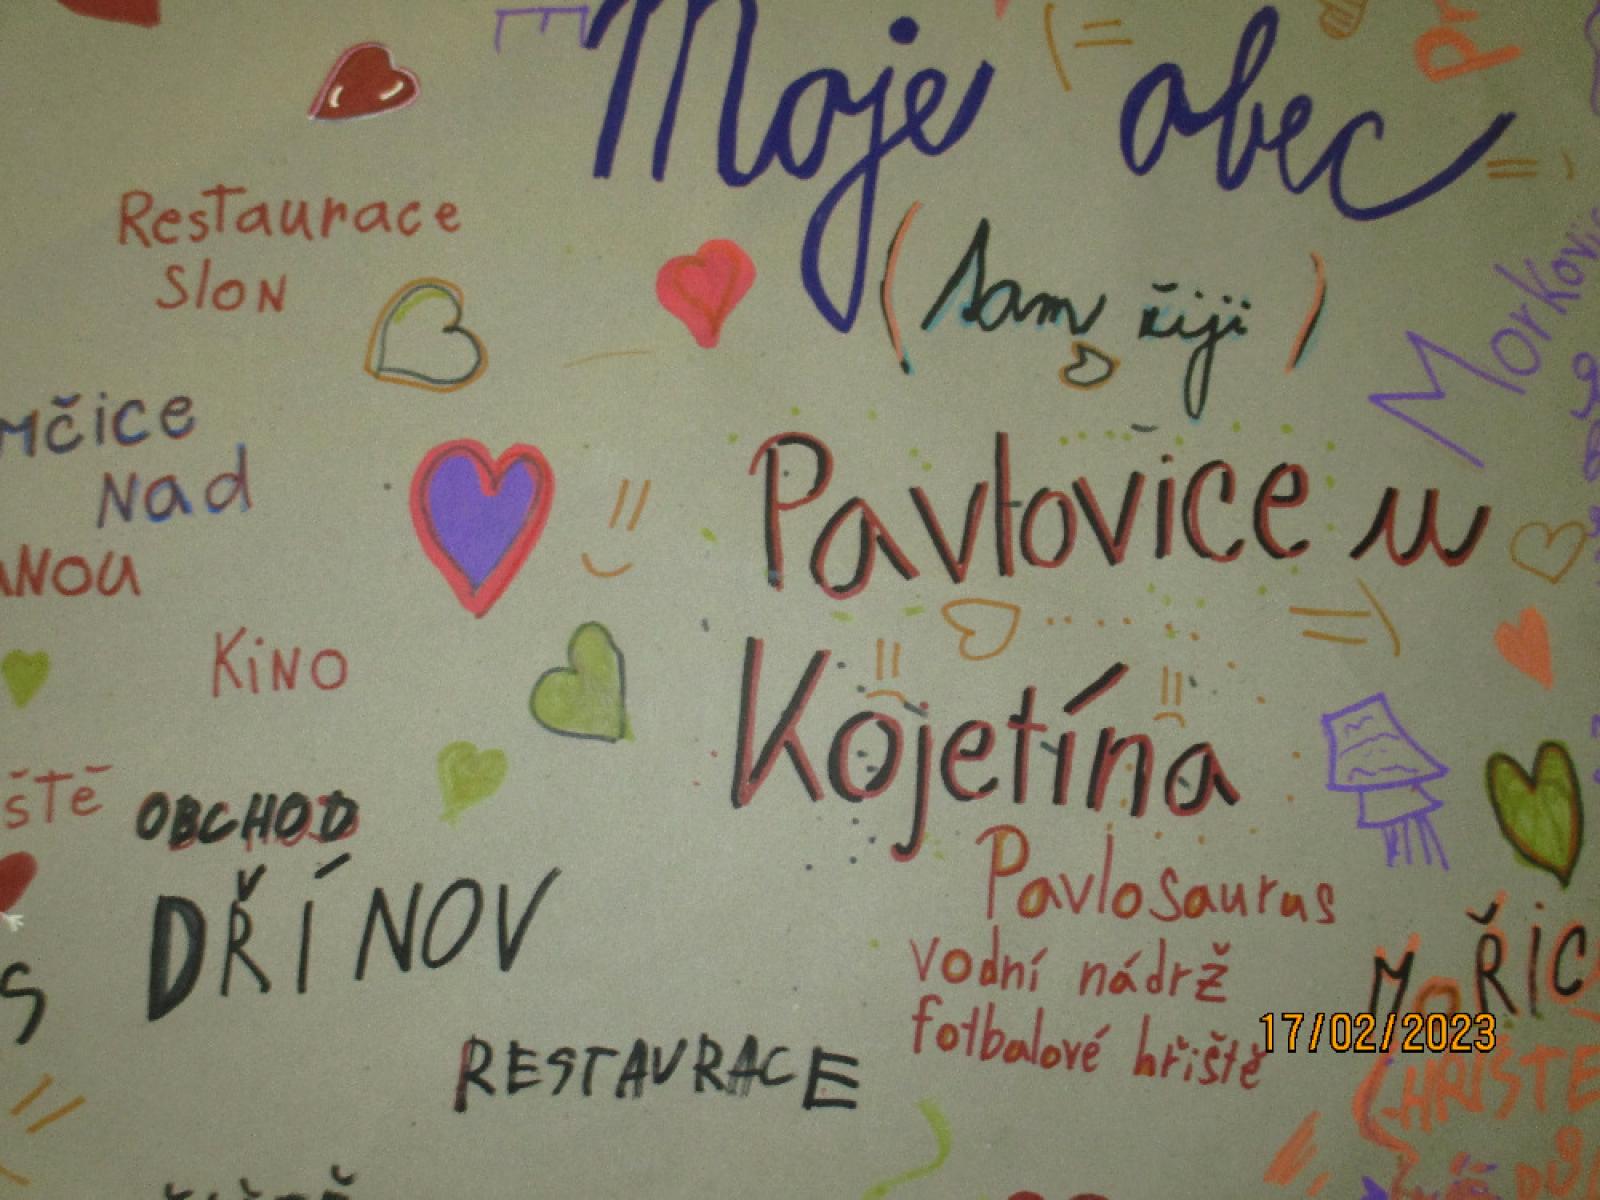 Moje obec
(sam žiji)
Restaurace
Slon
Pavlovice u
Kojetína
mčice
Nad
ANOU
Kino
ště
OBCHOD
DŘÍNOV
Pavlosaurus
vodní nádrž
fotbalové hřiště
MOŘIC
RESTAURACE
17/02/2023
HŘIŠTE